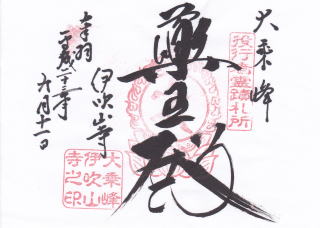 大乗峰
役行者霊蹟札所
薬王殿
伊吹山寺
奉拝
平成二十三年
六月十一日
大乗峰
伊吹山
寺之印